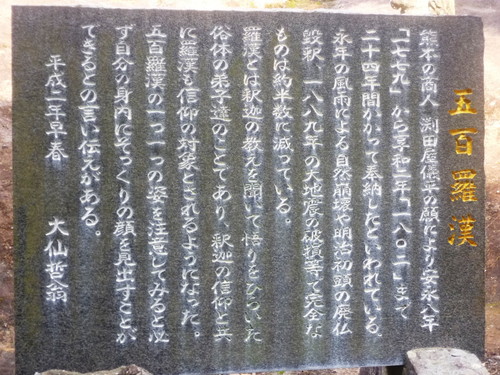 五百羅漢
熊本の商人渕田屋儀平の願により安永八年
「一七七九」から享和二年「一八〇二」まで
二十四年間かかって奉納したといわれている。
永年の風雨による自然崩壊や明治初頭の廃仏
毀釈、一八八九年の大地震の破損等で完全な
ものは約半数に減っている。
羅漢とは釈迦の教えを聞いて悟りをひらいた
俗体の弟子達のことであり、釈迦の信仰と共
に羅漢も信仰の対象とされるようになった。
五百羅漢の一つ一つの姿を注意してみると必
ず自分の身内にそっくりの顔を見出すことが
できるとの言い伝えがある。
平成二年早春 大仙哲翁